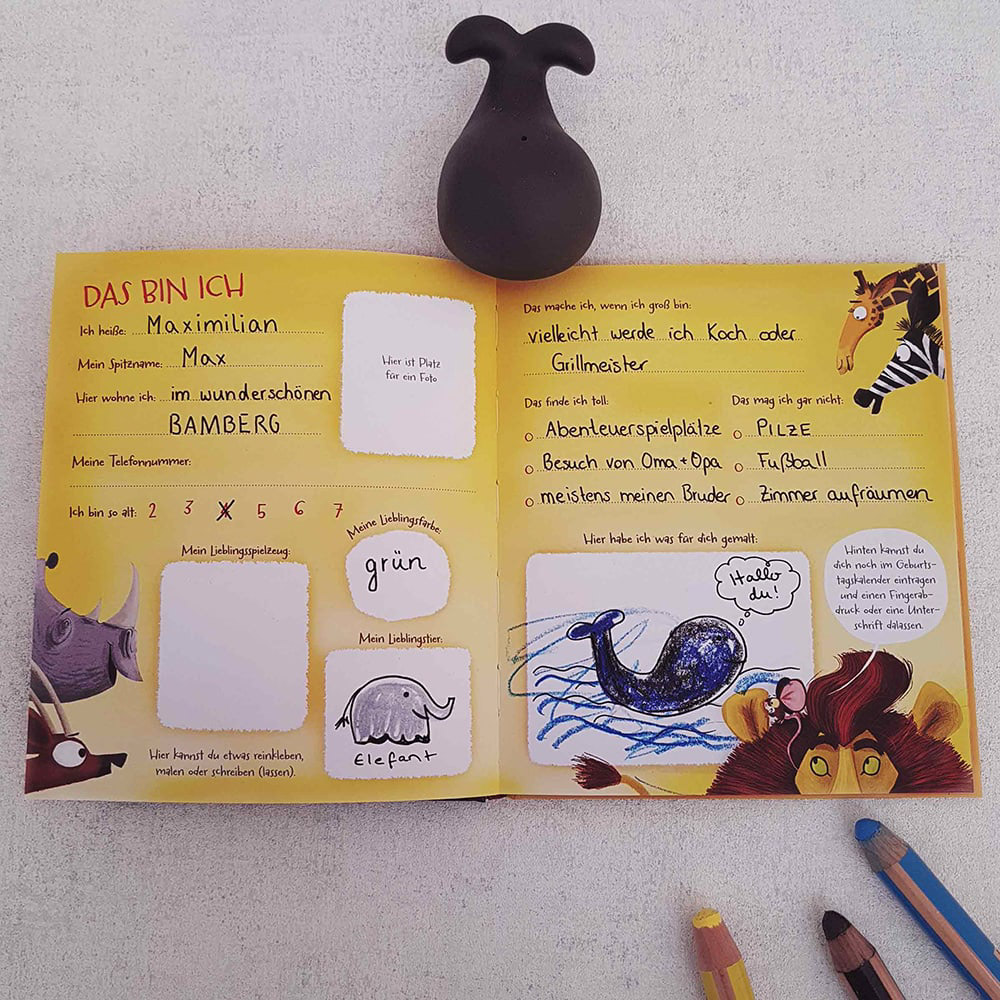 DAS BIN ICH
Ich heiße: Maximilian
Mein Spitzname: Max
Hier wohne ich: im wunderschönen
BAMBERG
Meine Telefonnummer:
Ich bin so alt: 2 3 4 5 6 7
Hier ist Platz
für ein Foto
Meine Lieblingsfarbe:
grün
Mein Lieblingsspielzeug:
Mein Lieblingstier:
Elefant
Hier kannst du etwas reinkleben,
malen oder schreiben (lassen).
Das mache ich, wenn ich groß bin:
vielleicht werde ich Koch oder
Grillmeister
Das finde ich toll:
Abenteuerspielplätze
Besuch von Oma + Opa
meistens meinen Bruder
Das mag ich gar nicht:
PILZE
Fußball
Zimmer aufräumen
Hier habe ich was für dich gemalt:
Hallo
du!
Hinten kannst du
dich noch im Geburts-
tagskalender eintragen
und einen Fingerab-
druck oder eine Unter-
schrift dalassen.